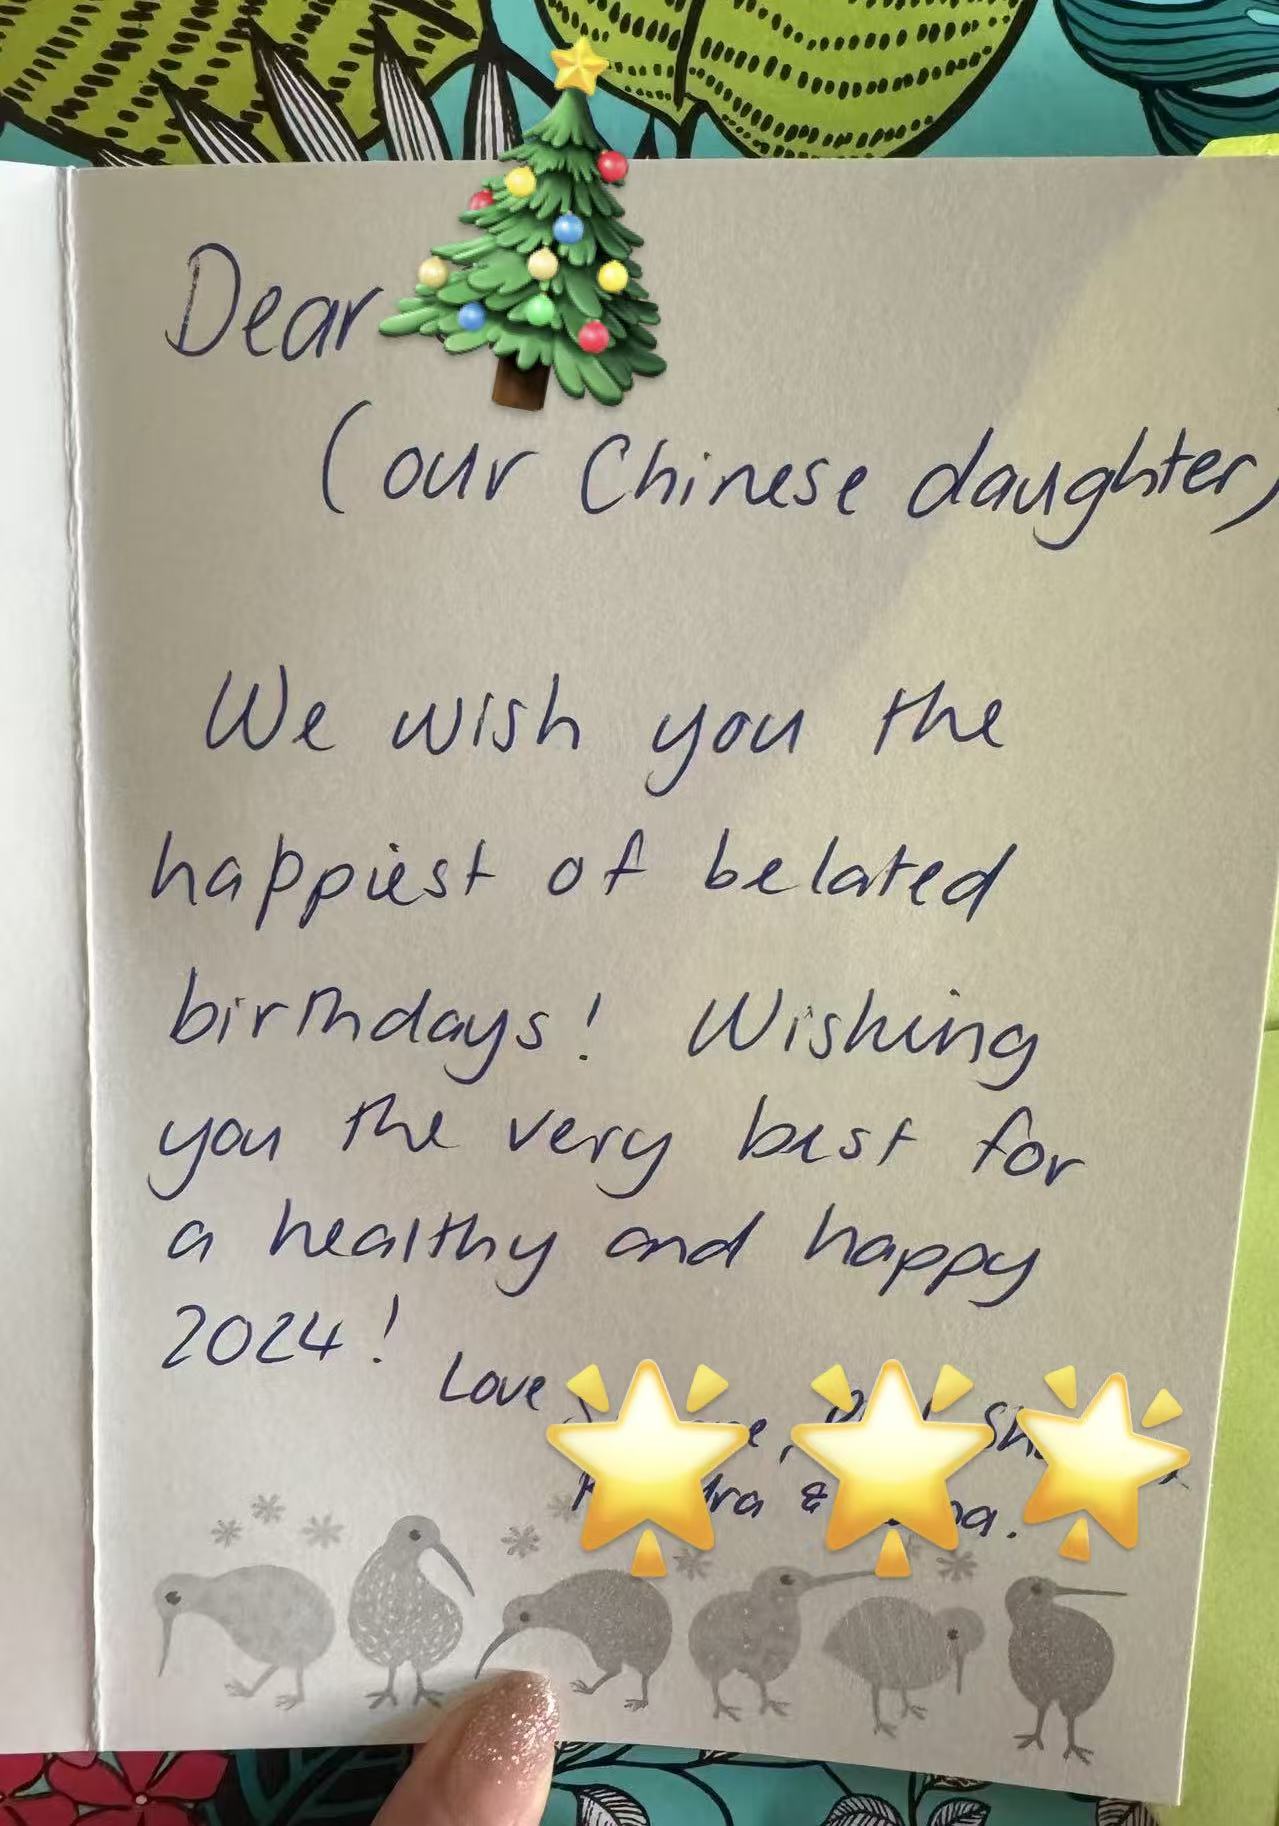 Dear
(our Chinese daughter)
We wish you the
happiest of belated
birthdays! Wishing
you the very best for
a healthy and happy
2024!
Love
&